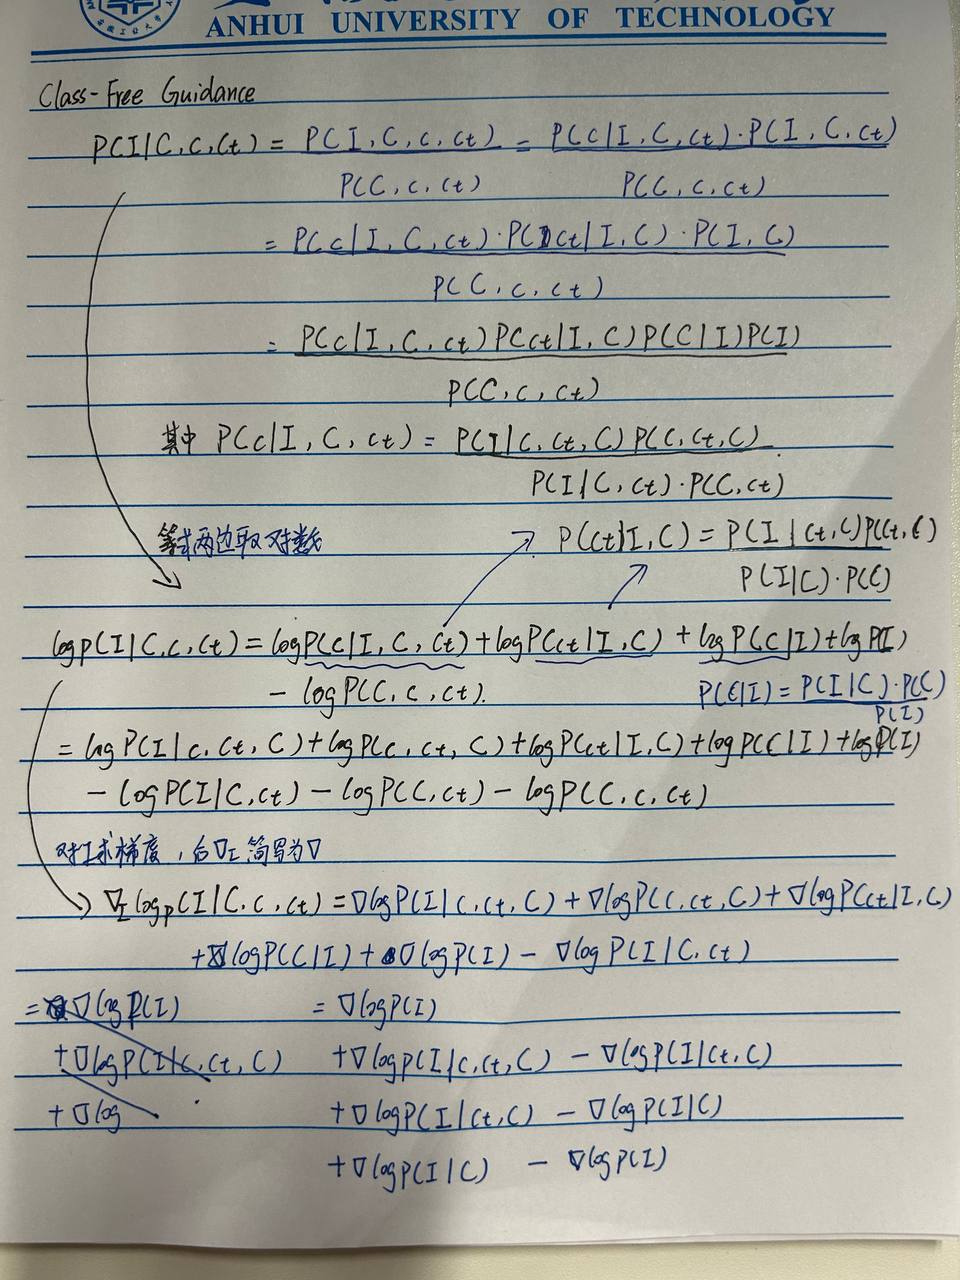 ANHUI UNIVERSITY OF TECHNOLOGY
Class-Free Guidance
P(I|C,c,ct) = P(I,C,c,ct) / P(C,c,ct) = P(c|I,C,ct)·P(I,C,ct) / P(C,c,ct)
= P(c|I,C,ct)·P(ct|I,C)·P(I,C) / P(C,c,ct)
= P(c|I,C,ct)P(ct|I,C)P(C|I)P(I) / P(C,c,ct)
其中 P(c|I,C,ct) = P(I|c,ct,C)P(c,ct,C) / P(I|C,ct)·P(C,ct)
等式两边取对数
P(ct|I,C) = P(I|ct,C)P(ct,C) / P(I|C)·P(C)
logp(I|C,c,ct) = logP(c|I,C,ct) + logP(ct|I,C) + logP(C|I) + logP(I)
- logP(C,c,ct).
P(C|I) = P(I|C)·P(C) / P(I)
= logP(I|c,ct,C) + logP(c,ct,C) + logP(ct|I,C) + logP(C|I) + logP(I)
- logP(I|C,ct) - logP(C,ct) - logP(C,c,ct)
对I求梯度,后∇I简写为∇
∇I logp(I|C,c,ct) = ∇logP(I|c,ct,C) + ∇logP(c,ct,C) + ∇logP(ct|I,C)
+ ∇logP(C|I) + ∇logP(I) - ∇logP(I|C,ct)
= ∇logP(I)
+∇logP(I|c,ct,C)
+∇log
= ∇logP(I)
+∇logP(I|c,ct,C) - ∇logP(I|ct,C)
+∇logP(I|ct,C) - ∇logP(I|C)
+∇logP(I|C) - ∇logP(I)